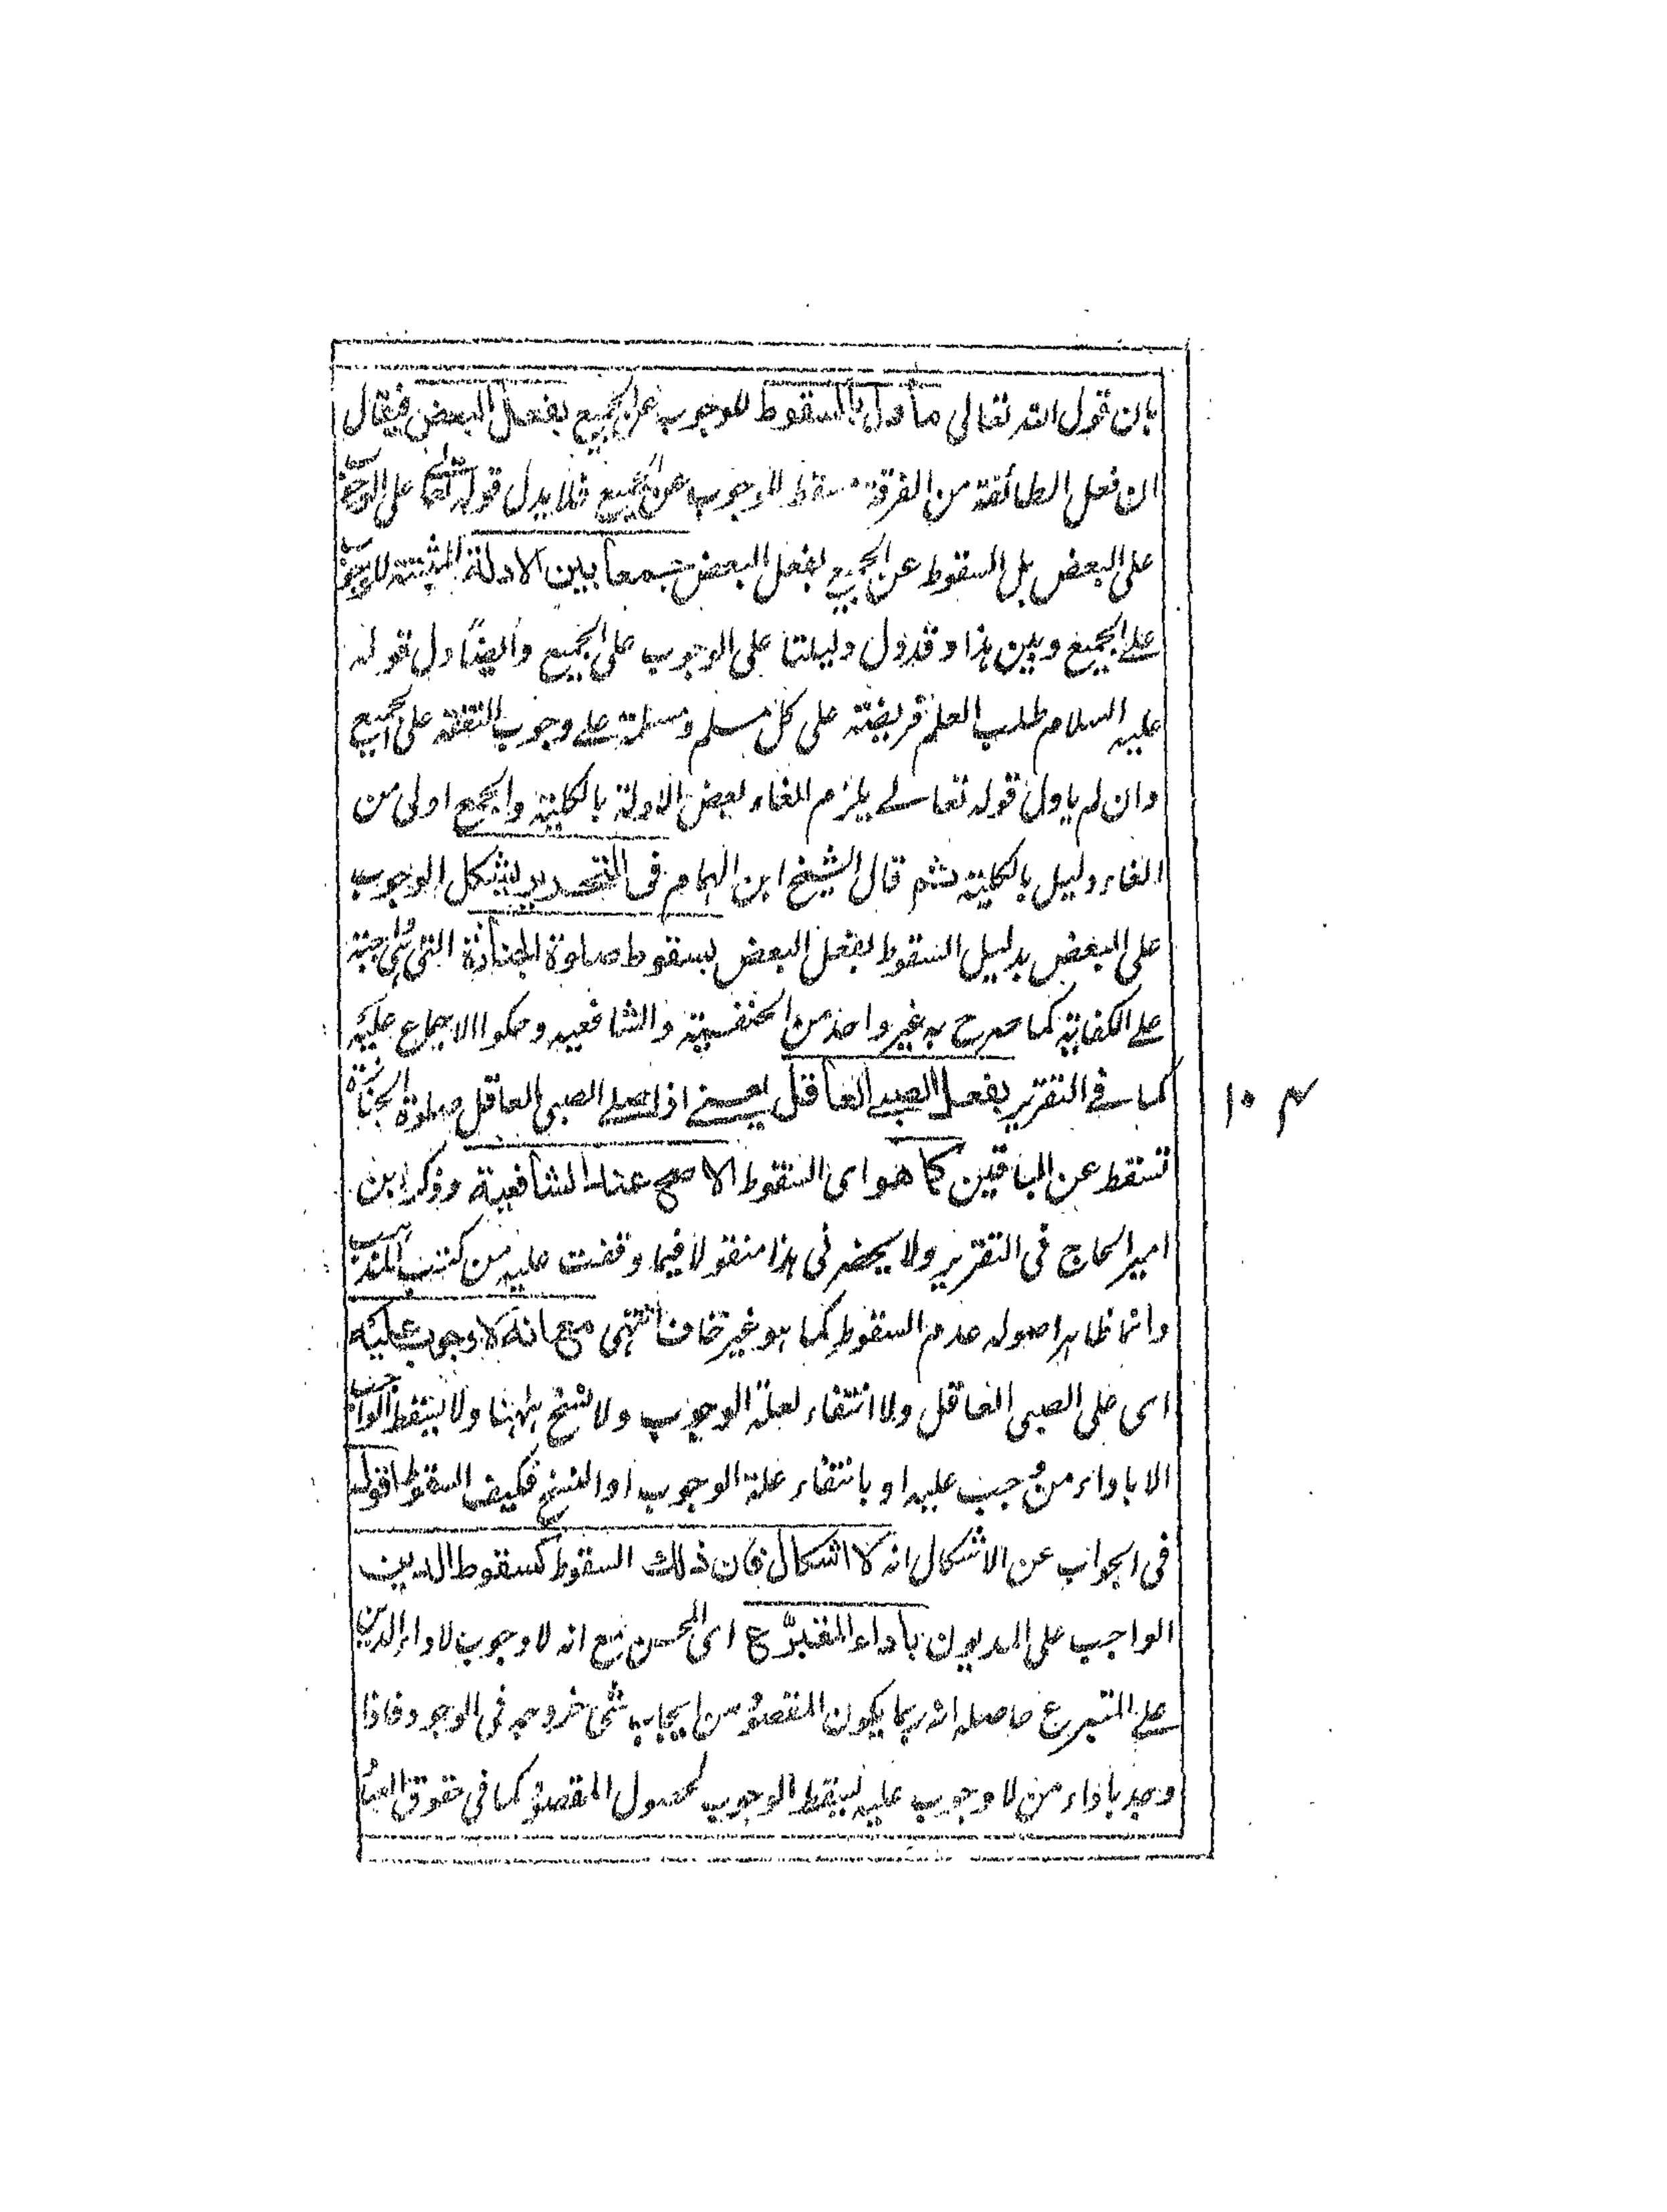 بان قول الله تعالى مأول بالسقوط للوجوب عن الجميع بفعل البعض فيقال
ان فعل الطائفة من الفرقة مسقط للوجوب عن الجميع فلا يدل قوله تعالى على الوجوب
على البعض بل السقوط عن الجميع بفعل البعض جمعا بين الادلة المثبتة للوجوب
على الجميع وبين هذا وقد دل دليلنا على الوجوب على الجميع وايضا دل قوله
عليه السلام طلب العلم فريضة على كل مسلم ومسلمة على وجوب التفقه على الجميع
وان لم ياول قوله تعالى يلزم الغاء بعض الادلة بالكلية والجمع اولى من
الغاء دليل بالكلية ثم قال الشيخ ابن الهمام فى التحرير يشكل الوجوب
على البعض بدليل السقوط بفعل البعض بسقوط صلوة الجنازة التى هى واجبة
على الكفاية كما صرح به غير واحد من الحنفية والشافعيه وحكوا الاجماع عليه
كما فى التقرير بفعل الصبى العاقل يعنى اذا صلى الصبى العاقل صلوة الجنازة
تسقط عن الباقين كما هو اى السقوط الاصح عند الشافعية وذكر ابن
امير الحاج فى التقرير ولا يحضرنى هذا منقولا فيما وقفت عليه من كتب المذهب
وانما ظاهر اصوله عدم السقوط كما هو غير خاف انتهى مع انه لا وجوب عليه
اى على الصبى العاقل ولا انتفاء لعلة الوجوب ولا نسخ ههنا ولا يسقط الواجب
الا باداء من وجب عليه او بانتفاء علة الوجوب او النسخ فكيف السقوط اقول
فى الجواب عن الاشكال انه لا اشكال فان ذلك السقوط كسقوط الدين
الواجب على المديون باداء المتبرع اى المحسن مع انه لا وجوب لاداء الدين
على المتبرع حاصله انه ربما يكون المقصود من ايجاب شئ خروجه فى الوجود فاذا
وجد باداء من لا وجوب عليه يسقط الوجوب لحصول المقصود كما فى حقوق العباد
م ١٠